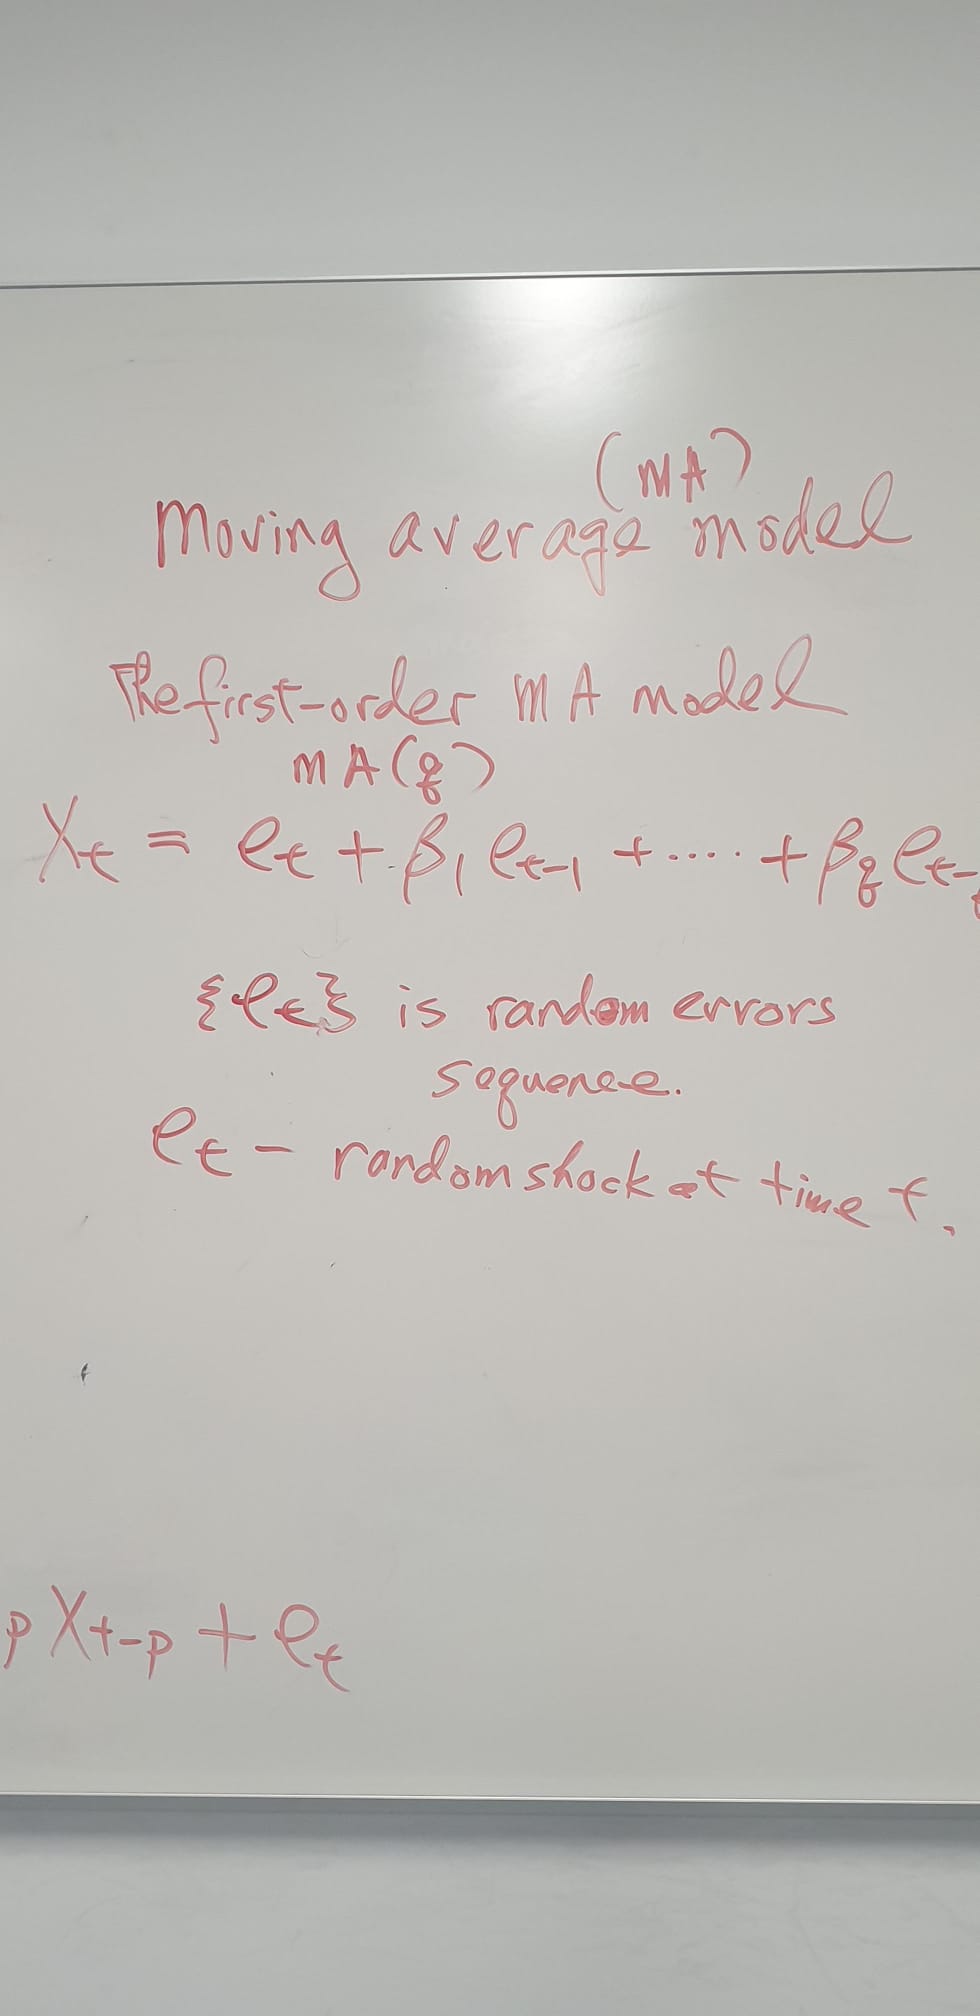 (MA)
Moving average model
The first-order MA model
MA(q)
Xt = et + β1 et-1 + .... + βq et-
{et} is random errors
sequence.
et - random shock at time t.
p Xt-p + et